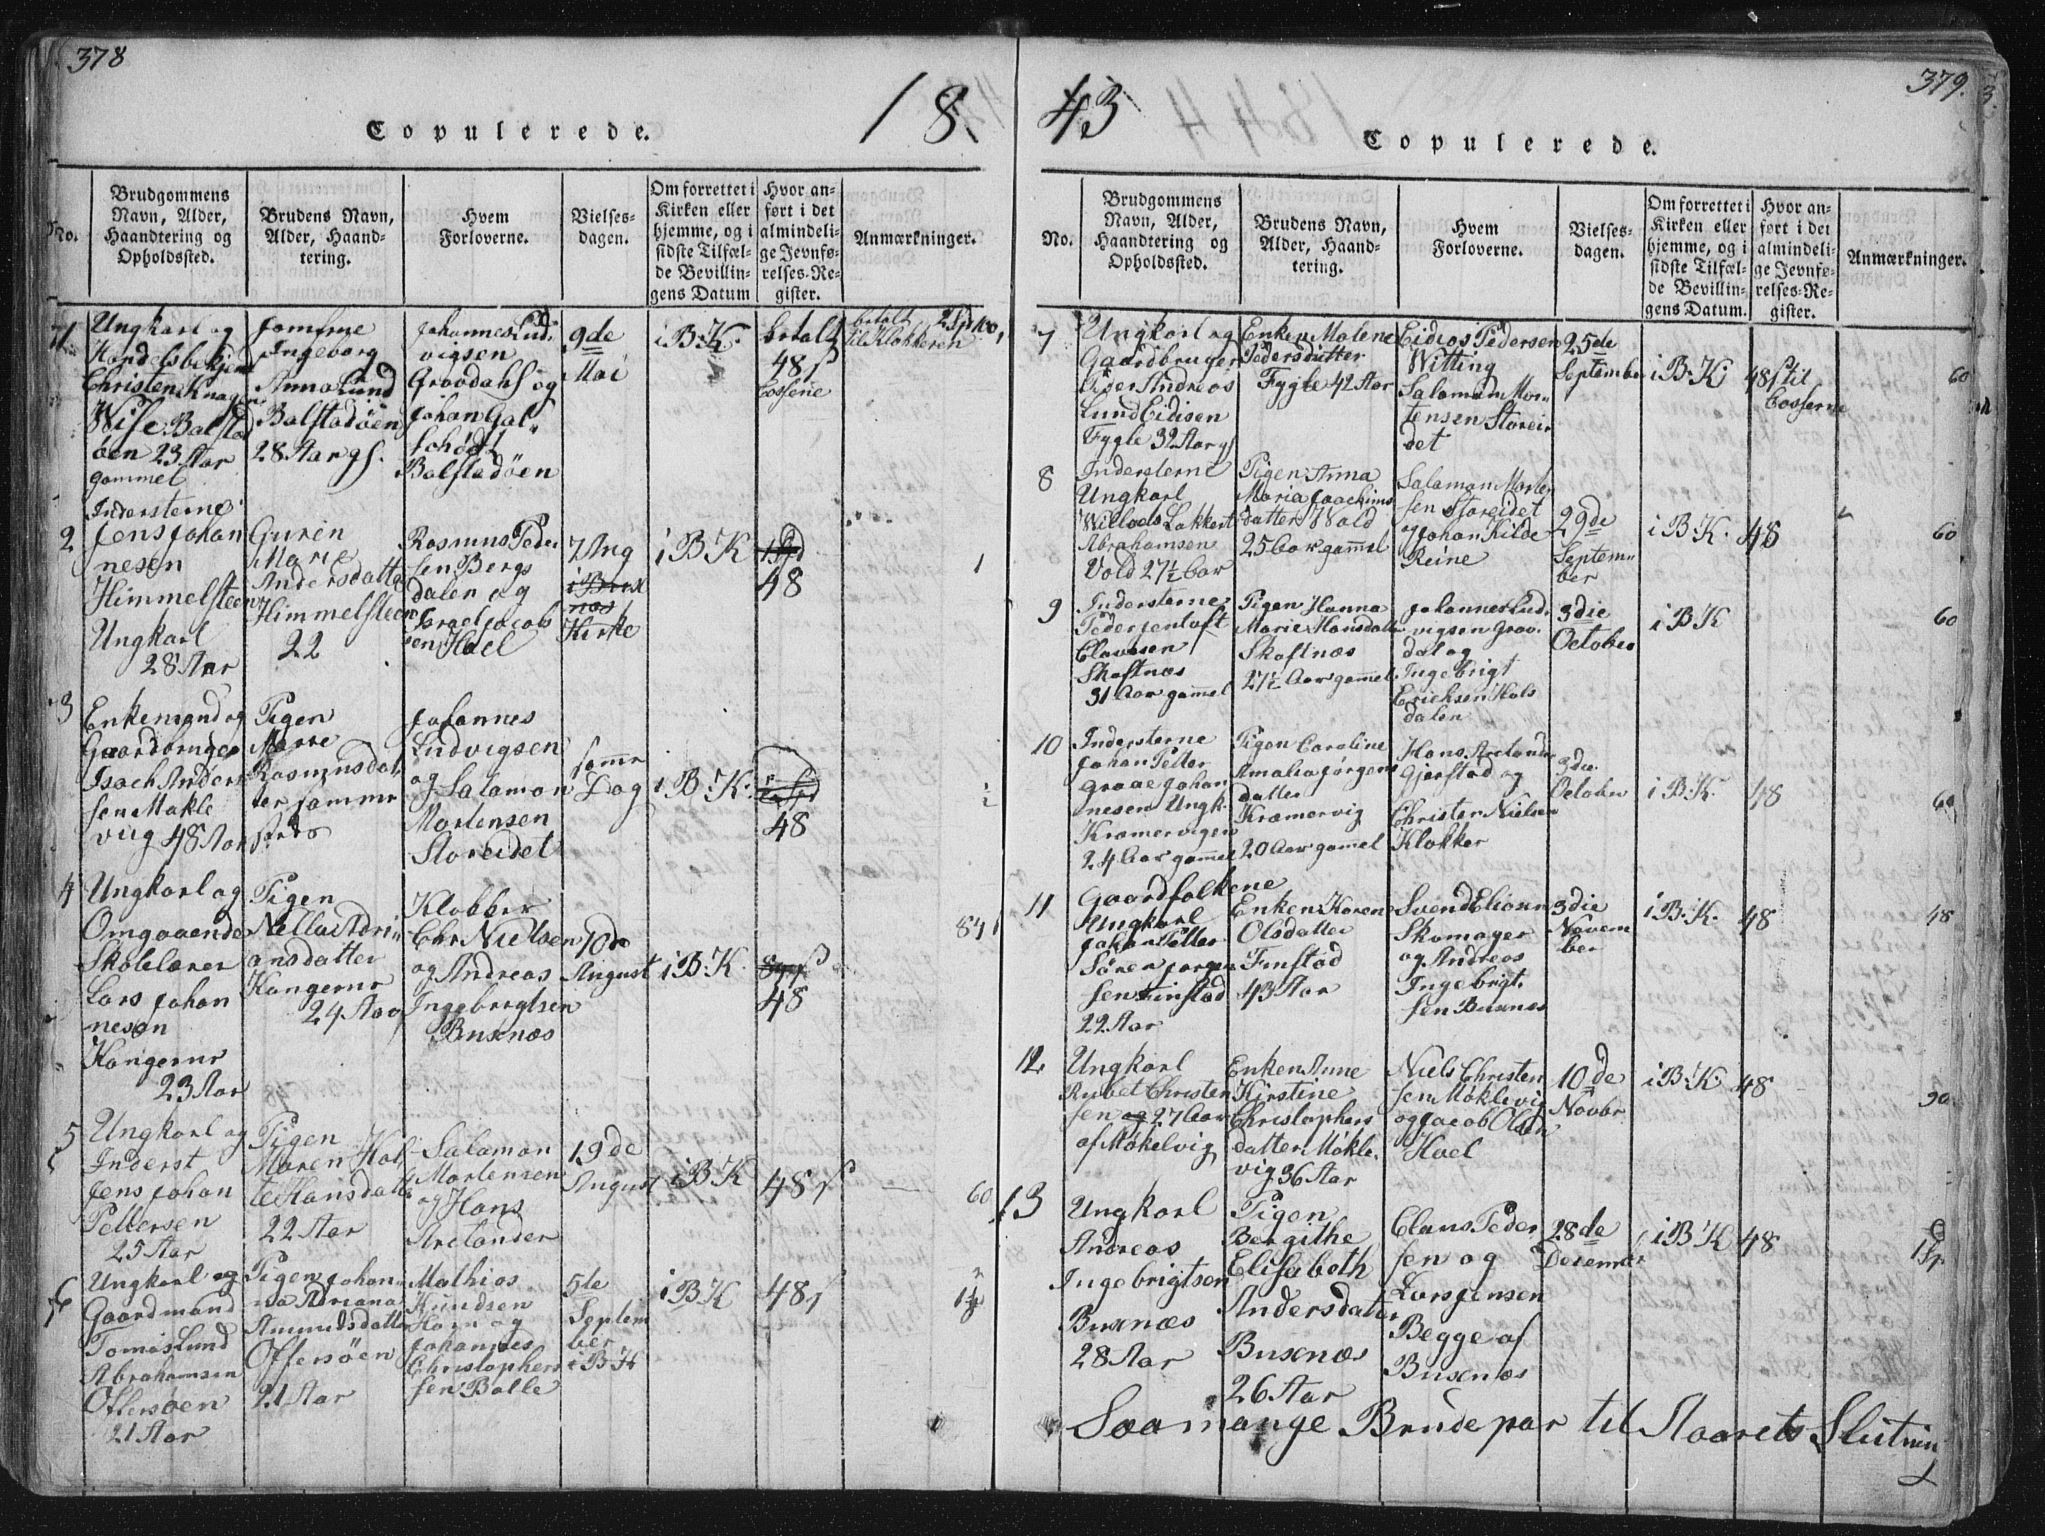 378
18
Copulerede.
No.
Brudgommens
Navn, Alder,
Haandtering og
Opholdssted.
Brudens Navn,
Alder, Haand-
tering.
Hvem
Forloverne.
Vielses-
dagen.
Om forrettet i
Kirken eller
hjemme, og i
sidste Tilfæl-
de Bevillin-
gens Datum
Hvor an-
ført i det
almindeli-
ge Jevnfø-
relses-Re-
gister.
Anmærkninger.
1
Ungkarl og
Christen Knagen
Wise Balstad
øen 23 Aar
gammel
Jomfrue
Ingeborg
Anna Lund
Balstadøen
28 Aar gl.
Johannes Lud
vigsen
Gravdahl og
Johan Gal
schødt
Balstadøen
9de
Mai
i B. K.
betalt
48 s
betalt
til Klokkeren
2
Indersterne
Jens Johan
nesen
Himmelsteen
Ungkarl
28 Aar
Guren
Marie
Andersdatter
Himmelsteen
22
Rasmus Peder
sen Bergs
dalen og
Israel Jacob
sen Hoel
7 Aug
i Bux
næs
Kirke
i B K
48
1
3
Enkemand og
Gaardbruger
Isach Anders
sen Møkle
viig 48 Aar
Pigen
Rasmusdat
ter samme
sted
Johannes
Ludvigsen
og Salamon
Mortensen
Storeidet
samme
Dag
i B. K.
48
4
Ungkarl og
Omgaaende
Skolelærer
Lars Johan
nesen
Kangerur
23 Aar
Pigen
Nella Adri
ansdatter
Kangerur
24 Aar
Klokker
Chr Nielsen
og Andreas
Ingebrigtsen
Buxnæs
10de
August
i B. K.
48
84
5
Ungkarl og
Inderst
Jens Johan
Pettersen
25 Aar
Pigen
Maren Kol
te Hansdatter
22 Aar
Salamon
Mortensen
og Hans
Arctander
19de
August
i B K
48 s
60
6
Ungkarl og
Gaardmand
Tomas Lund
Abrahamsen
Offersøen
21 Aar
Pigen Johan
na Adriana
Amundsdatter
Offersøen
21 Aar
Mathias
Knudsen
Horn og
Johannes
Christophers
sen Balle
5te
Septem
ber
i B K
i B K
48 s
379.
43
Copulerede.
No.
Brudgommens
Navn, Alder,
Haandtering og
Opholdssted.
Brudens Navn,
Alder, Haand-
tering.
Hvem
Forloverne.
Vielses-
dagen.
Om forrettet i
Kirken eller
hjemme, og i
sidste Tilfæl-
de Bevillin-
gens Datum.
Hvor an-
ført i det
almindeli-
ge Jevnfø-
relses-Re-
gister.
Anmærkninger.
7
Ungkarl og
Gaardbruger
Andreas
Lund Eidisen
Fygle 32 Aar gl
Enken Malene
Pedersdatter
Fygle 42 Aar
Eidias Pedersen
Witting
Salamon Mor
tensen Storei
det
25de
September
i B. K.
48 s til
60
8
Indersterne
Ungkarl
Lakkert
Abrahamsen
Vold 27½ Aar
Pigen Anna
Maria Joachims
datter Wold
25 Aar gammel
Salamon Morten
sen Storeidet
og Johan Kilde
Reine
29de
Septem
ber
i B. K.
48
60
9
Indersterne
Peder Jentoft
Clavesen
Skaftnæs
31 Aar gammel
Pigen Hanna
Marie Hansdatter
Skaftnæs
27½ Aar gammel
Johannes Lud
vigsen Grav
dal og
Ingebrigt
Erichsen Hols
dalen
3die
October
i B K
60
10
Indersterne
Johan Petter
Graae Johan
nesen Ungk.
Kræmervigen
24 Aar gammel
Pigen Caroline
Amalia Jørgens
datter
Kræmervig
20 Aar gammel
Hans Arctander
Gjerstad og
Christen Nielsen
Klokker
3die
October
i B. K.
48
60
11
Gaardfolkene
Ungkarl
Johan Petter
Søren Jørgen
sen Finstad
22 Aar
Enken Karen
Olsdatter
Finstad
43 Aar
Svend Eliasen
Skomager
og Andreas
Ingebrigt
sen Buxnæs
3die
Novem
ber
i B. K.
48
48
12
Ungkarl
Christen
sen og 27 Aar
af Møkelvig
Enken Anne
Kirstine
Christophers
datter Møkle
vig 36 Aar
Niels Christen
sen Møklevig
og Jacob Olsen
Hoel
10de
Novbr
i B. K.
48
90
13
Ungkarl
Andreas
Ingebrigtsen
Buxnæs
28 Aar
Pigen
Bergithe
Elisabeth
Andersdatter
Buxnæs
26 Aar
Claus Peder
sen og
Lars Jensen
Begge af
Buxnæs
28de
Decemer
i B K
48
Saa mange Brudepar til Aarets Slutning